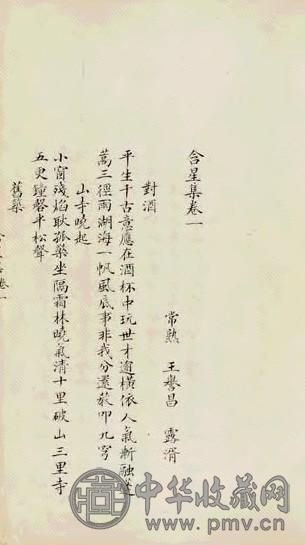 含星集卷一
常熟 王譽昌 露湑
對酒
平生千古意應在酒杯中玩世才逾橫依人氣漸融蓬
蒿三徑雨湖海一帆風底事非我分還教叩九穹
山寺曉起
小窗殘焰耿孤檠坐隔霜林曉氣清十里破山三里寺
五更鐘磬半松聲
舊築
卷一
中华收藏网
www.pmv.cn